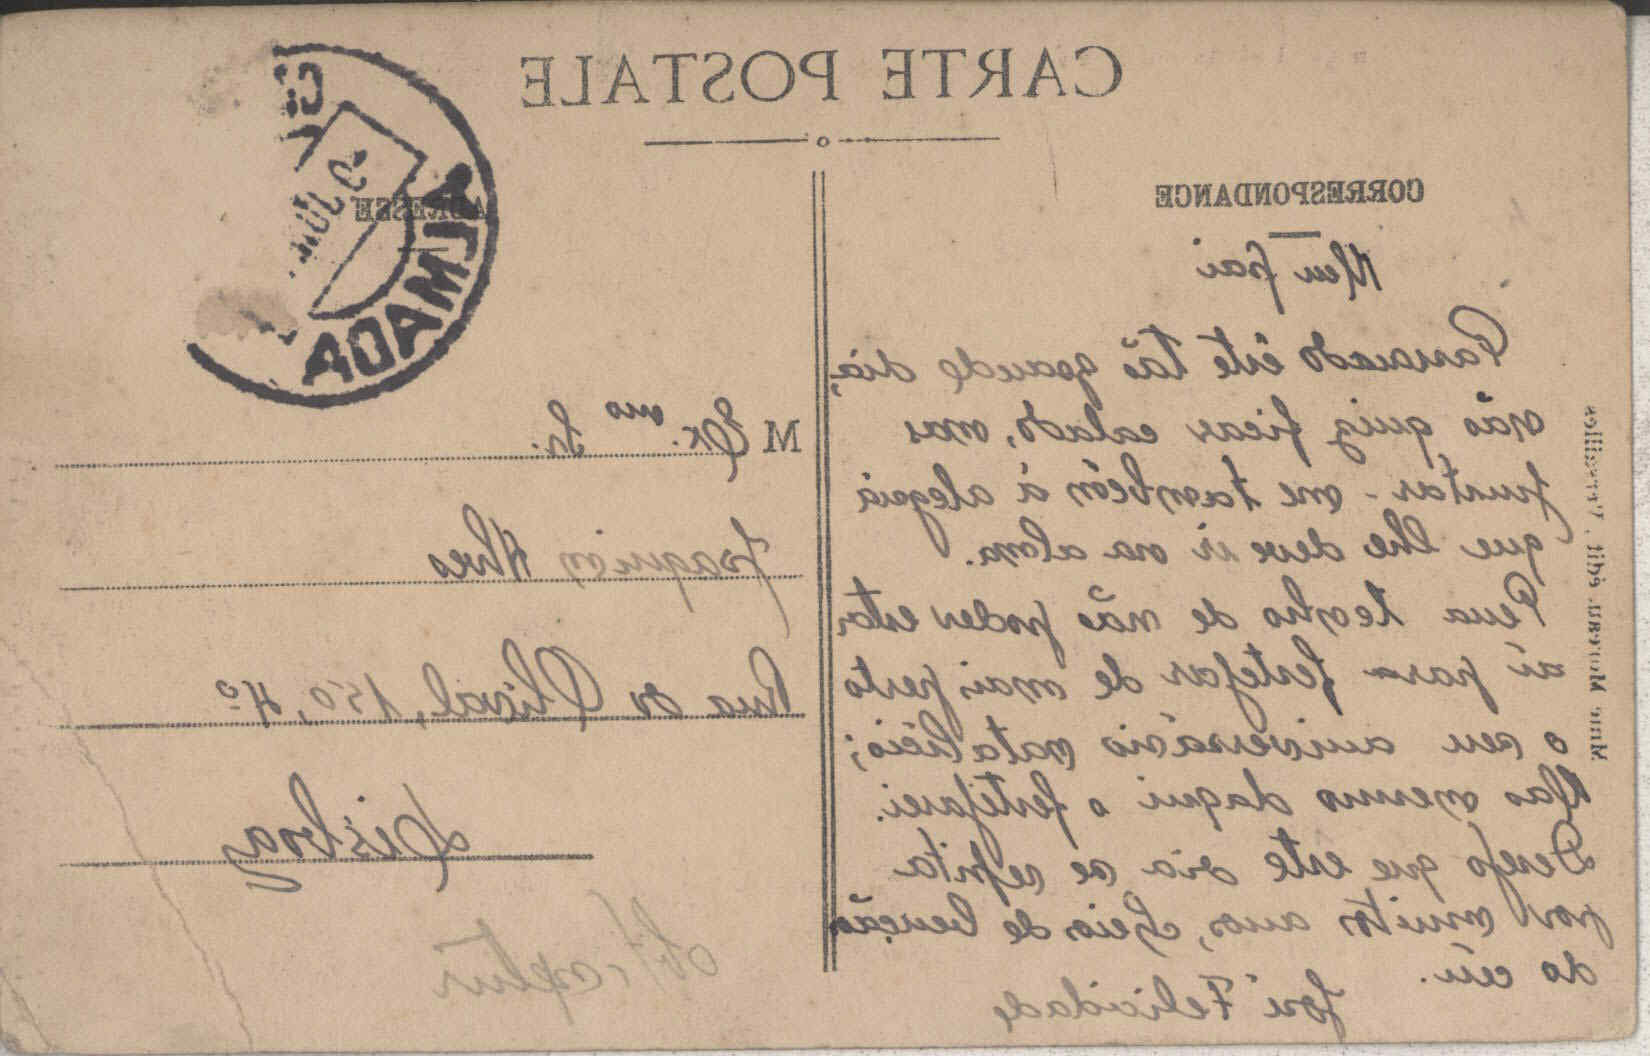 CARTE POSTALE
CORRESPONDANCE
Meu pai
Passando êste tão grande dia,
não quiz ficar calado, mas
juntar-me também á alegria
que lhe deve ir na alma.
Pena tenho de não poder estar
aí para festejar de mais perto
o seu aniversário natalício;
Mas mesmo daqui o festejarei.
Desejo que este dia se repita
por muitos anos, cheios de bençãos
do céu.
José Felicidade
édit., Marseilles
ADRESSE
ALMADA
M Ex.mo Sr.
Joaquim Alves
Rua do Olival, 150, 4º
Lisboa